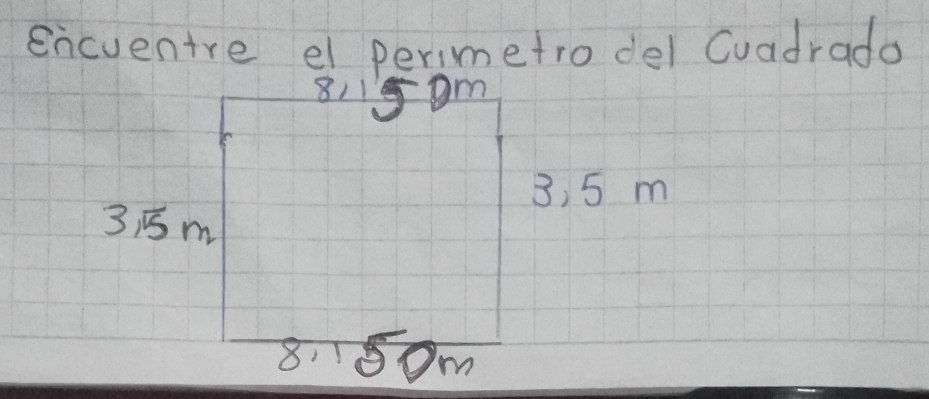 Encuentre el Perimetro del Cuadrado
8,150m
3,5 m
3,5 m
8,150m